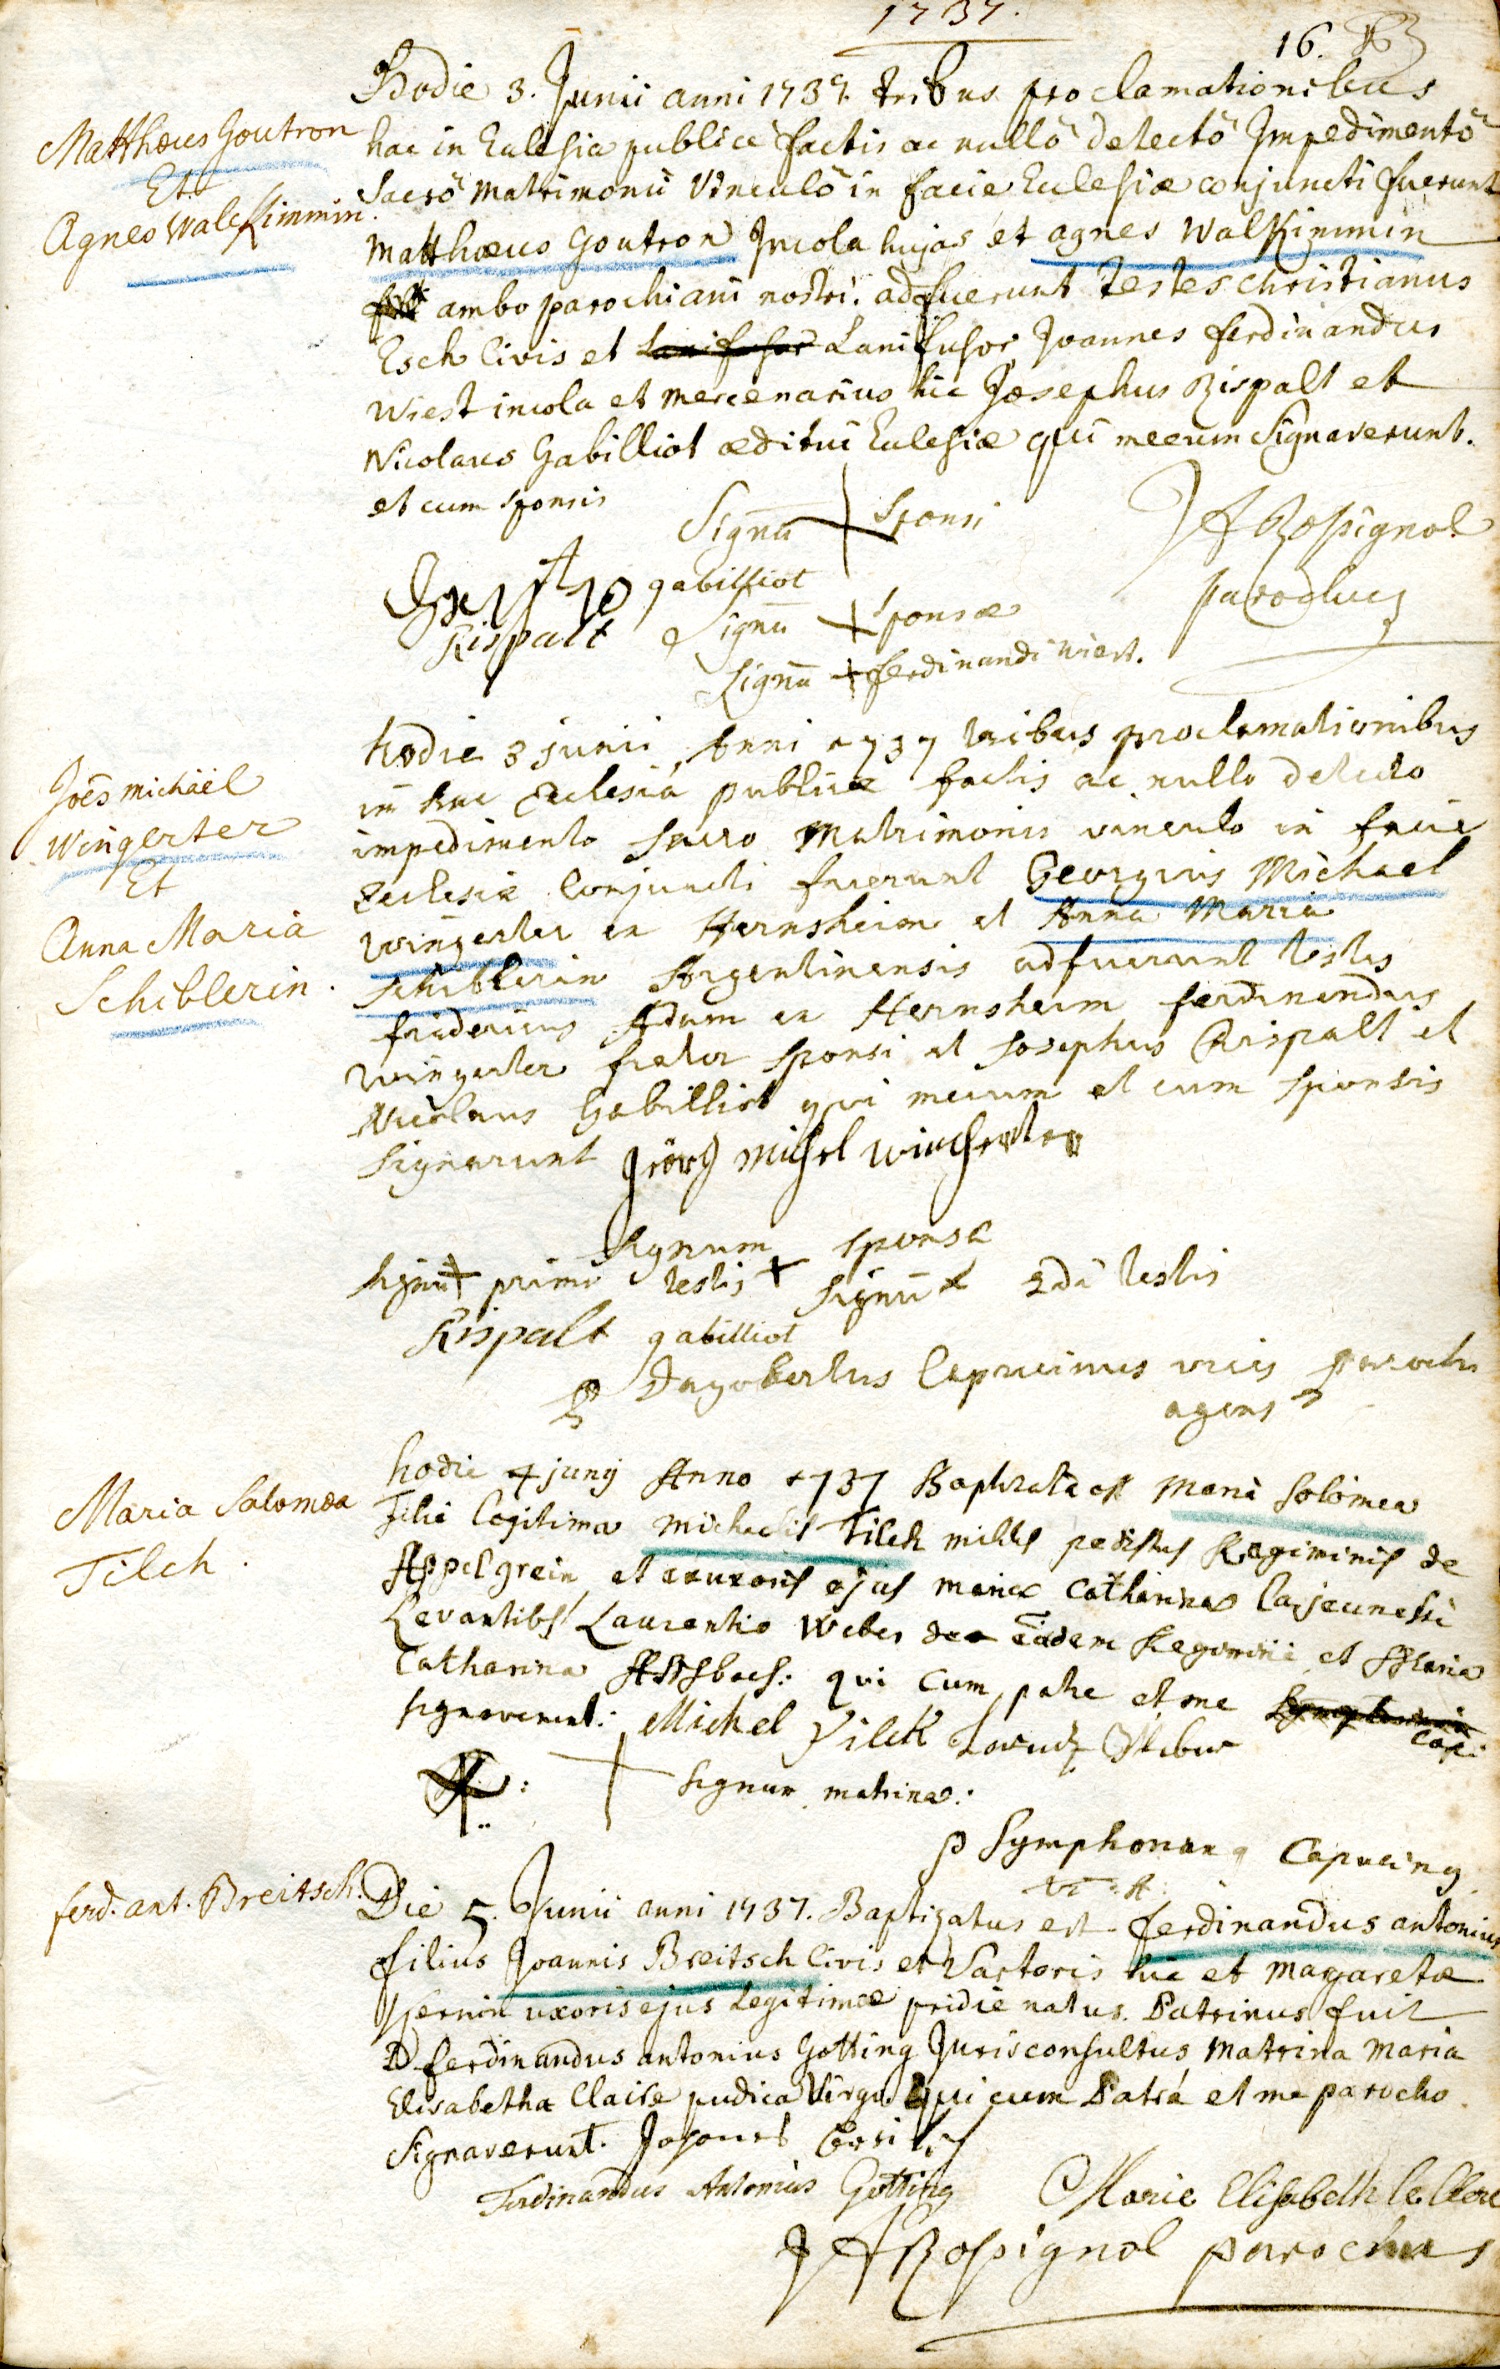 1737.
16.
Hodie 3. Junii anni 1737. tribus proclamationibus
hac in Eclesia publicè factis ac nullô detectô Impedimentô
Sacrô Matrimonii Vinculô in facie Eclesiæ conjuncti fuerunt
Matthæus Goutron Incola hujas et agnes WalKimmin
ambo parochiani nostri. adfuerunt testes christianus
Esch Civis et Lanifusor Lanifusor, Joannes ferdinandus
Wiest incola et mercenarius hic Josephus Rispalt et
Nicolaus Gabilliot æditui Eclesiæ qui mecum Signaverunt.
et cum sponsis
Matthæus Goutron
Et
Agnes WalcKimmin.
Signū + Sponsi
JARossignol
parochus
gabilliot
Rispalt
Signū + sponsæ
Signū + ferdinandi wiest.
hodie 3 junii Anni 1737 tribus proclamationibus
in hac Eclesiá publicæ factis ac nullo detecto
impedimento sacro Matrimonii vinculo in facie
Eclesiæ Conjuncti fuerunt Georgius Michael
Wingerter ex Hernsheim et Anna Maria
schiblerin Argentinensis adfuerunt testes
fridericus Adam ex Hernsheim ferdinandus
Wingerter frater sponsi et Josephus Rispalt et
Nicolaus Gabilliot qui mecum et cum sponsis
signarunt Jeörg Michel Wincherter
Joēs michäel
Wingerter
Et
Anna Maria
Schiblerin.
Signum + sponsæ
signū + primi testis signū + 2di testis
Rispalt gabilliot
P Dagobertus Capucinus vices parochi
agens
hodie 4 junij Anno 1737 Baptizata est Maria Solomea
Filia legitima Michaelis Tilck militis pedistus Regiminis de
Appelgrein et uxoris ejus mariæ Catharinæ lajeunesse
Levantibs Laurentio Weber de eadem Regimine et Maria
Catharina qui Cum patre et me
signaverunt: Michel Tilck Lorentz Weber
Maria Salomea
Tilch.
+ Signum matrinæ:
P Symphorian Capucinus
Die 5. Junii anni 1737. Baptizatus est ferdinandus antonius
filius Joannis Breitsch Civis et Sartoris hic et Magaretæ
uxoris ejus Legitimæ pridie natus. Patrinus fuit
D ferdinandus antonius Gotting Jurisconsultus Matrina Maria
Elisabetha Claire pudica Virgo. Qui cum Patre et me parocho
Signaverunt.
ferd. ant. Breitsch.
Ferdinandus Antonius Gotting Marie Elisabeth le Clerc
JARossignol parochus